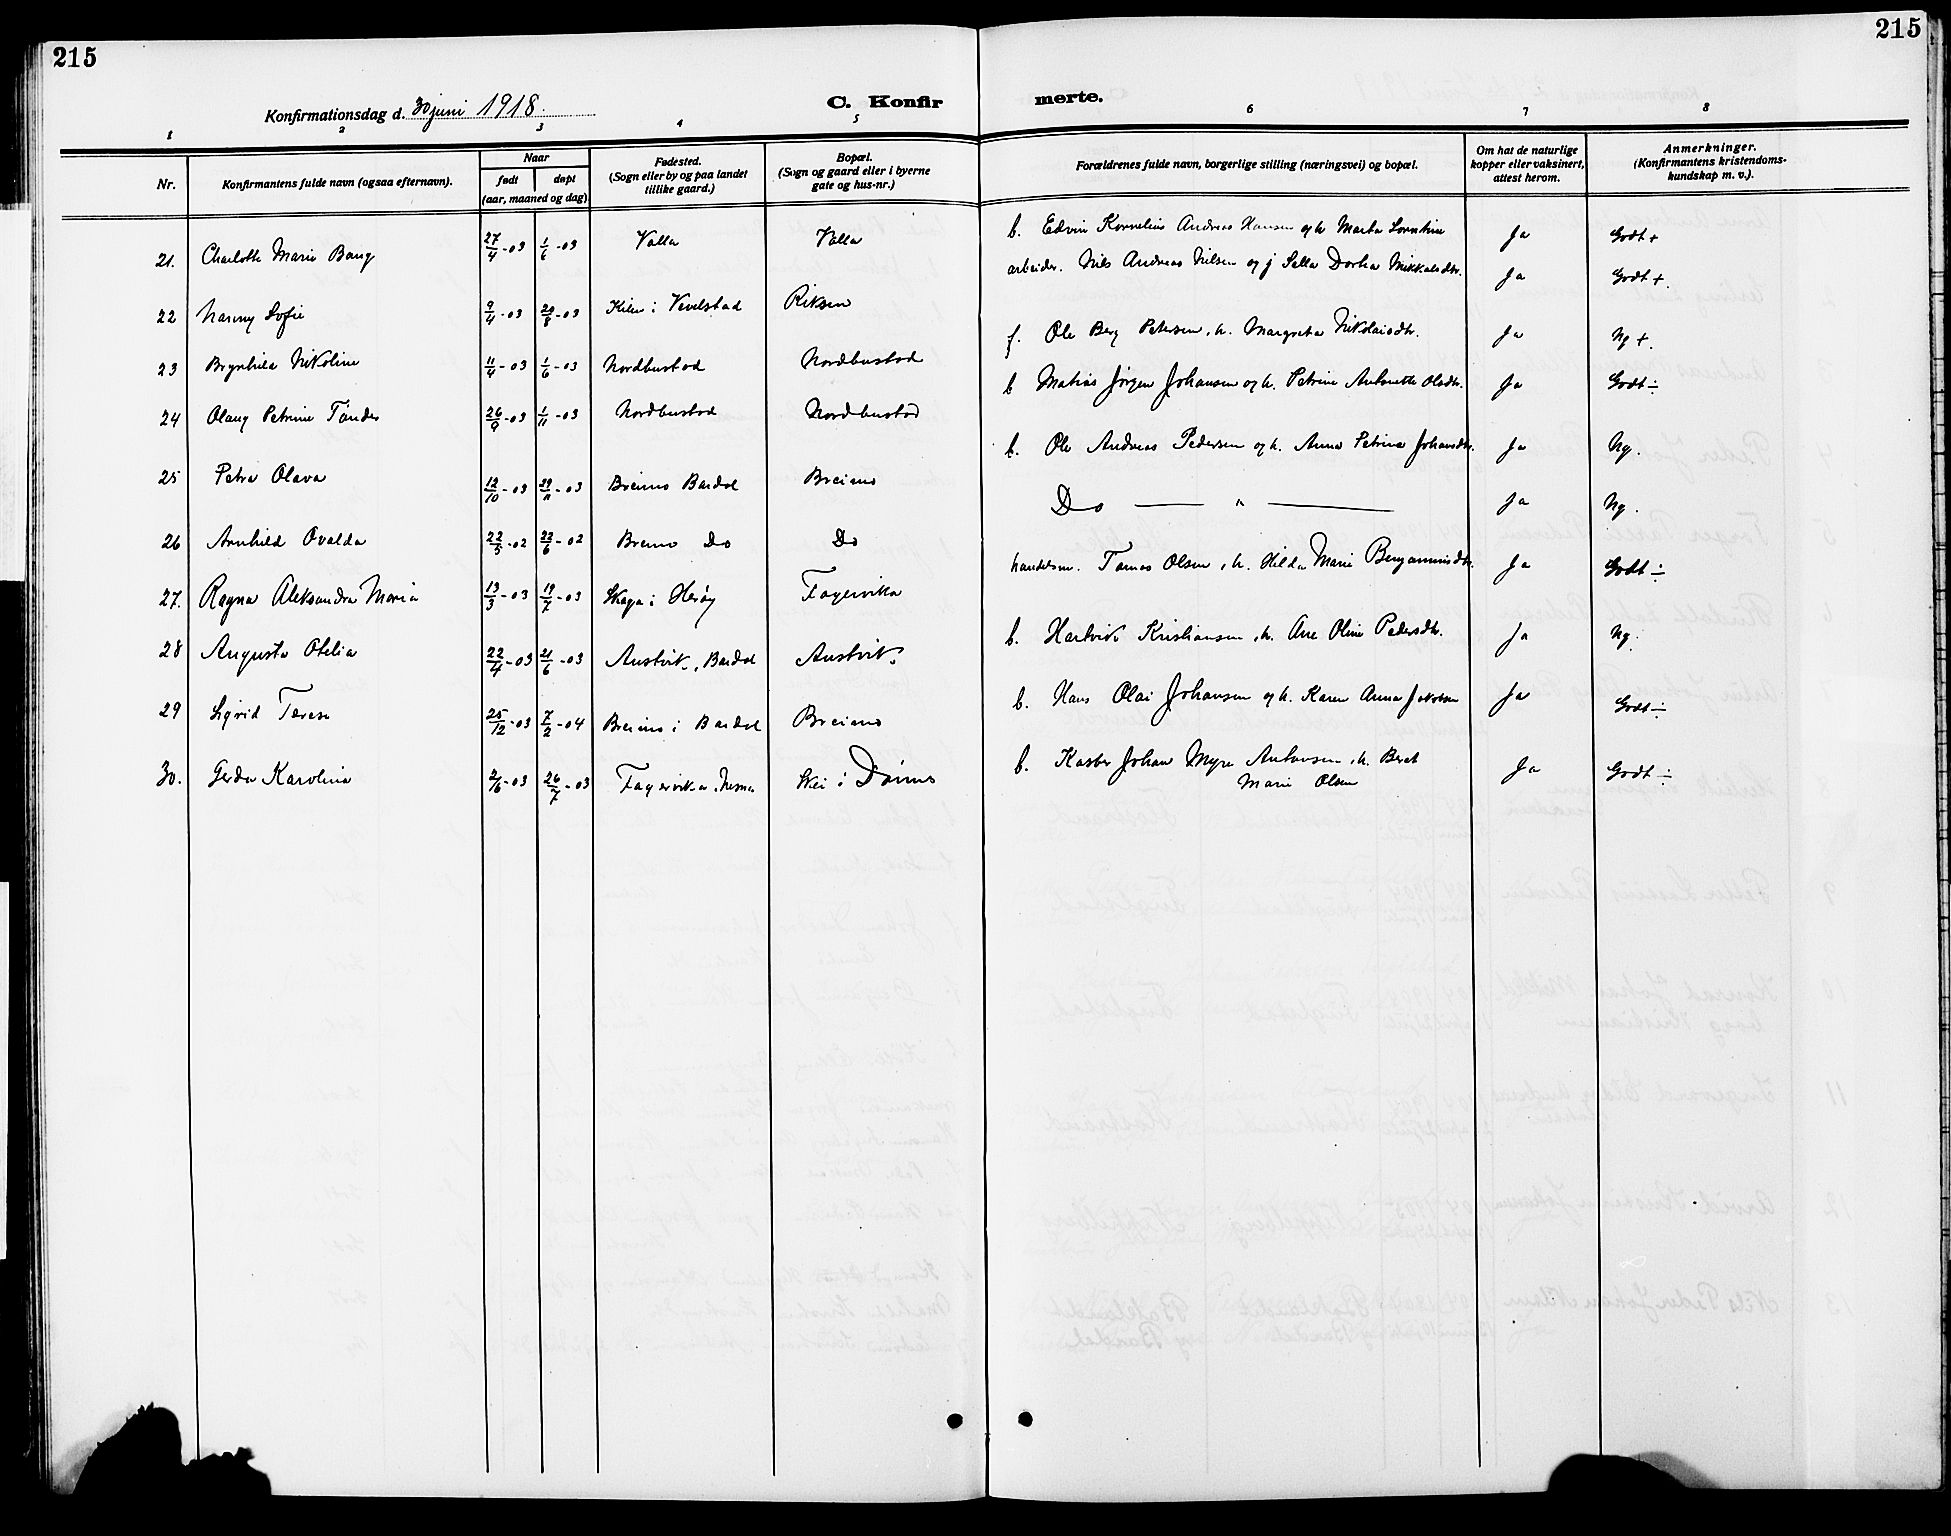 215
215
Konfirmationsdag d. 30 juni 1918.
C. Konfir
merte.
1 2 3 4 5 6 7 8
Nr.
Konfirmantens fulde navn (ogsaa efternavn).
Naar
født
døpt
(aar, maaned og dag)
Fødested.
(Sogn eller by og paa landet
tillike gaard.)
Bopæl.
(Sogn og gaard eller i byerne
gate og hus-nr.)
Forældrenes fulde navn, borgerlige stilling (næringsvei) og bopæl.
Om hat de naturlige
kopper eller vaksinert,
attest herom.
Anmerkninger.
(Konfirmantens kristendoms-
kundskap m. v.).
21. Charlotte Marie Bang 27/4-03 1/6-03 Valla Valla b. Edvin Kornelius Andreas Hansen og h Marta Ja Godt +
22 Nanny Sofie 9/4-03 23/8-03 i Vevelstad arbeider. Nils Andreas Nilsen og j Dortea Mikkalsdtr. Ja Godt +.
23 Brynhild Nikoline 11/4-03 1/6-03 Nordbustad Nordbustad f. Ole Berg Petersen, h. Margreta Nikolaisdtr. Ja Ng +.
24 Olaug Petrine 26/9-03 1/11-03 Nordbustad Nordbustad b Matias Jørgen Johansen og h. Petrine Antonette Olsdtr. Ja Godt ÷
25 Petra Olava 12/10-03 29/11-03 Breimo Bardal Breimo b. Ole Andreas Pedersen og h. Anna Petrine Johansdtr. Ja Ng.
26 Arnhild Ovalda 22/5-02 22/6-02 Breimo Do Do Do — " — Ja Ng.
27. Ragna Aleksandra Maria 13/3-03 19/7-03 i Herøy Fagervika handelsm. Tomas Olsen, h. Hilda Marie Benjaminsdtr. Ja Godt ÷
28 Augusta Otelia 22/4-03 21/6-03 Austvik, Bardal Austvik b. Hartvik Kristiansen, h. Ane Oline Pedersdtr. Ja Ng.
29 Sigrid Terese 25/12-03 7/2-04 Breimo i Bardal Breimo b. Hans Olai Johansen og h. Karen Anna Jakobsen Ja Godt ÷
30. Gerda Karolina 2/6-03 26/7-03 Fagervika, Nesna i Dønnes b. Kasber Johan Myre Antonsen, h. Beret Ja Godt ÷
Marie Olsen